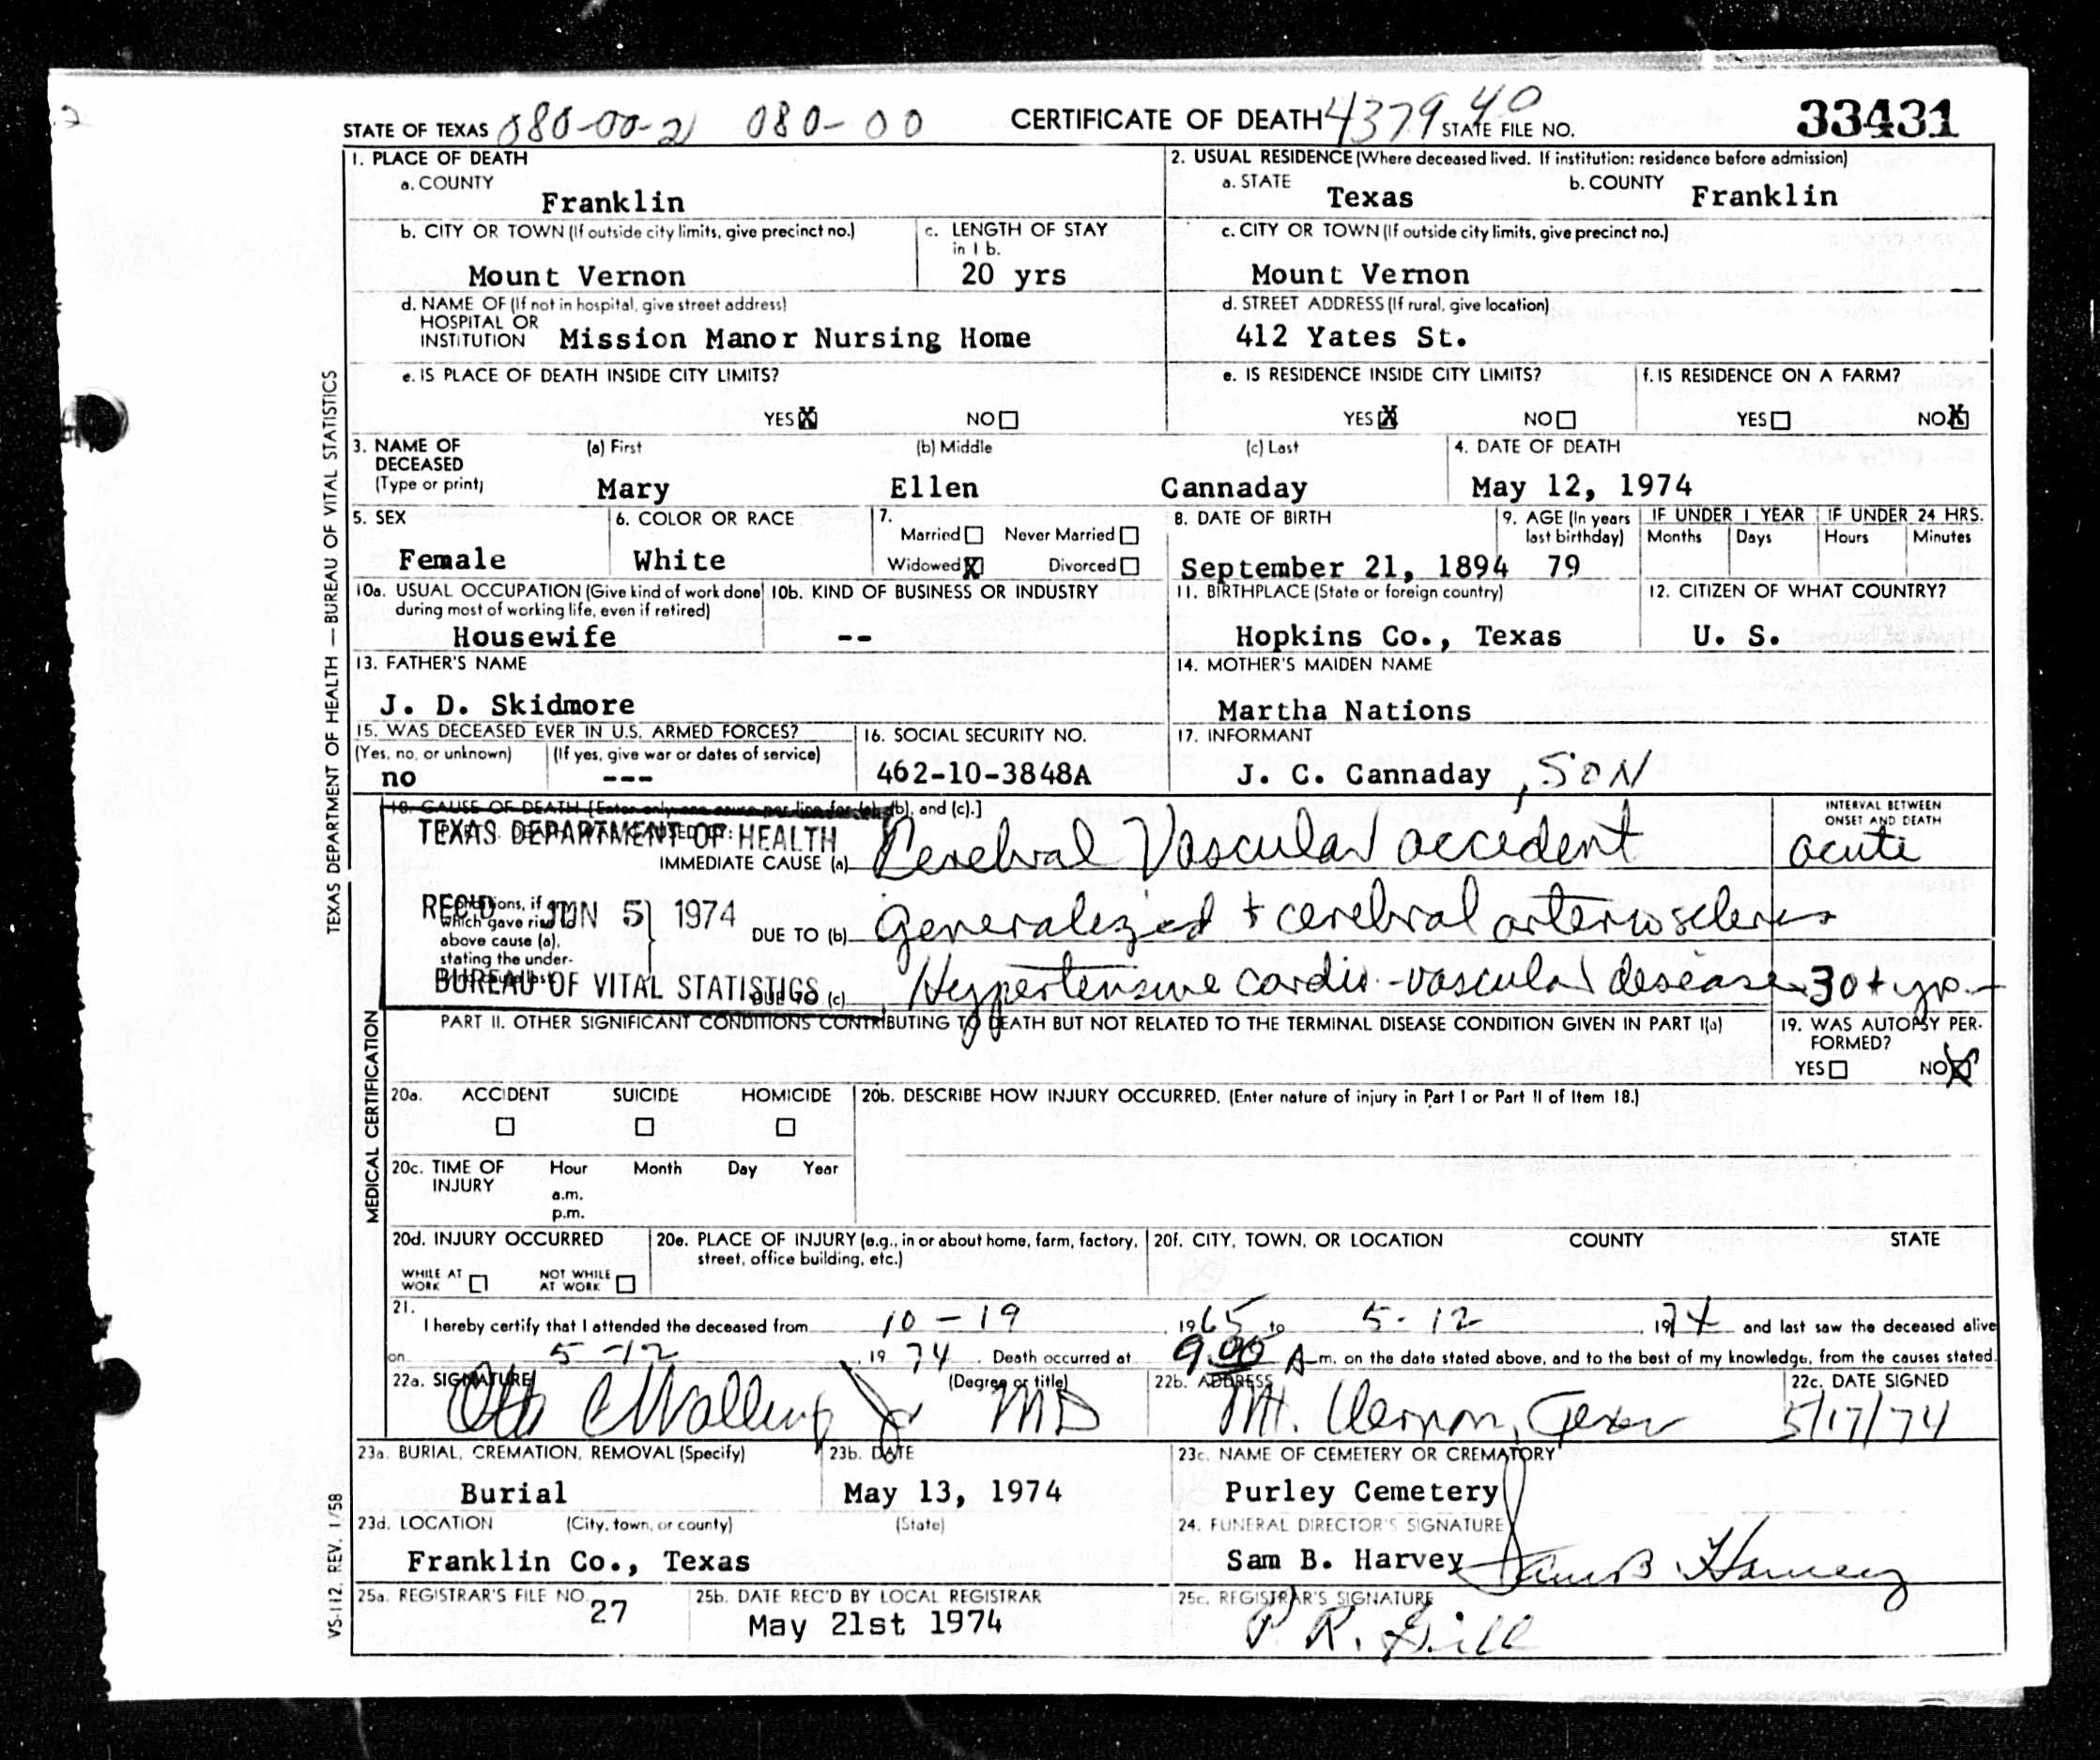 STATE OF TEXAS 080-00-2 080-00 CERTIFICATE OF DEATH 4379 40 STATE FILE NO. 33431
1. PLACE OF DEATH
a. COUNTY
Franklin
2. USUAL RESIDENCE (Where deceased lived. If institution: residence before admission)
a. STATE Texas b. COUNTY Franklin
b. CITY OR TOWN (If outside city limits, give precinct no.)
Mount Vernon
c. LENGTH OF STAY
in 1 b.
20 yrs
c. CITY OR TOWN (If outside city limits, give precinct no.)
Mount Vernon
d. NAME OF (If not in hospital, give street address)
HOSPITAL OR
INSTITUTION Mission Manor Nursing Home
d. STREET ADDRESS (If rural, give location)
412 Yates St.
e. IS PLACE OF DEATH INSIDE CITY LIMITS?
YES X NO
e. IS RESIDENCE INSIDE CITY LIMITS?
YES X NO
f. IS RESIDENCE ON A FARM?
YES NO X
3. NAME OF DECEASED
(Type or print)
(a) First (b) Middle (c) Last
Mary Ellen Cannaday
4. DATE OF DEATH
May 12, 1974
5. SEX
Female
6. COLOR OR RACE
White
7.
Married Never Married
Widowed X Divorced
8. DATE OF BIRTH
September 21, 1894
9. AGE (In years
last birthday)
79
IF UNDER 1 YEAR
Months Days
IF UNDER 24 HRS.
Hours Minutes
10a. USUAL OCCUPATION (Give kind of work done
during most of working life, even if retired)
Housewife
10b. KIND OF BUSINESS OR INDUSTRY
--
11. BIRTHPLACE (State or foreign country)
Hopkins Co., Texas
12. CITIZEN OF WHAT COUNTRY?
U. S.
13. FATHER'S NAME
J. D. Skidmore
14. MOTHER'S MAIDEN NAME
Martha Nations
15. WAS DECEASED EVER IN U.S. ARMED FORCES?
(Yes, no, or unknown) (If yes, give war or dates of service)
no ---
16. SOCIAL SECURITY NO.
462-10-3848A
17. INFORMANT
J. C. Cannaday, SON
18. CAUSE OF DEATH [Enter only one cause per line for (a), (b), and (c).]
TEXAS DEPARTMENT OF HEALTH
REC'D JUN 5 1974
BUREAU OF VITAL STATISTICS
IMMEDIATE CAUSE (a) Cerebral Vascular accident
INTERVAL BETWEEN
ONSET AND DEATH
acute
which gave rise
above cause (a),
stating the under-
DUE TO (b) Generalized + cerebral arteriosclerosis
DUE TO (c) Hypertensive cardio-vascular disease 30+ yrs.
PART II. OTHER SIGNIFICANT CONDITIONS CONTRIBUTING TO DEATH BUT NOT RELATED TO THE TERMINAL DISEASE CONDITION GIVEN IN PART I(a)
19. WAS AUTOPSY PER-
FORMED?
YES NO X
20a. ACCIDENT SUICIDE HOMICIDE
20b. DESCRIBE HOW INJURY OCCURRED. (Enter nature of injury in Part I or Part II of Item 18.)
20c. TIME OF
INJURY
Hour Month Day Year
a.m.
p.m.
20d. INJURY OCCURRED
WHILE AT
WORK
NOT WHILE
AT WORK
20e. PLACE OF INJURY (e.g., in or about home, farm, factory,
street, office building, etc.)
20f. CITY, TOWN, OR LOCATION COUNTY STATE
21.
I hereby certify that I attended the deceased from 10-19, 1965 to 5-12, 1974 and last saw the deceased alive
on 5-12, 1974. Death occurred at 9:00 A m. on the date stated above, and to the best of my knowledge, from the causes stated.
22a. SIGNATURE (Degree or title)
MD
22b. ADDRESS
Mt. Vernon, Texas
22c. DATE SIGNED
5/17/74
23a. BURIAL, CREMATION, REMOVAL (Specify)
Burial
23b. DATE
May 13, 1974
23c. NAME OF CEMETERY OR CREMATORY
Purley Cemetery
23d. LOCATION (City, town, or county) (State)
Franklin Co., Texas
24. FUNERAL DIRECTOR'S SIGNATURE
Sam B. Harvey Sam B Harvey
25a. REGISTRAR'S FILE NO.
27
25b. DATE REC'D BY LOCAL REGISTRAR
May 21st 1974
25c. REGISTRAR'S SIGNATURE
P. R. Gill
TEXAS DEPARTMENT OF HEALTH — BUREAU OF VITAL STATISTICS
MEDICAL CERTIFICATION
VS-112. REV. 1/58